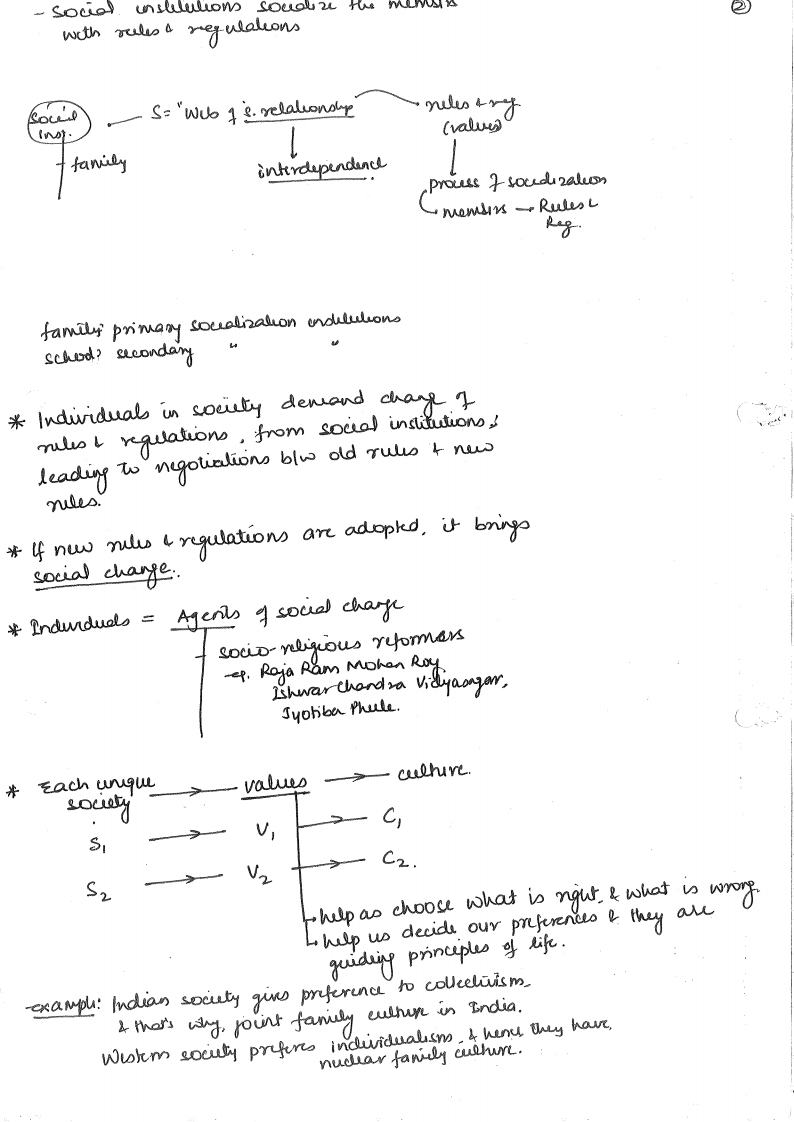 - Social institutions socialize the members
with rules & regulations
②
Social
Ins.
family
S = "Web of s. relationship
interdependence
rules & reg
(values)
process of socialization
members → Rules &
Reg.
family: primary socialization institutions
school: secondary " "
* Individuals in society demand change of
rules & regulations, from social institutions,
leading to negotiations b/w old rules & new
rules.
* If new rules & regulations are adopted, it brings
social change.
* Individuals = Agents of social change
socio-religious reformers
eg. Raja Ram Mohan Roy,
Ishwar Chandra Vidyasagar,
Jyotiba Phule.
* Each unique → values → culture.
society
S₁ → V₁ → C₁
S₂ → V₂ → C₂.
help as choose what is right & what is wrong.
help us decide our preferences & they are
guiding principles of life.
example: Indian society gives preference to collectivism
& that's why, joint family culture in India.
Western society prefers individualism & hence they have,
nuclear family culture.